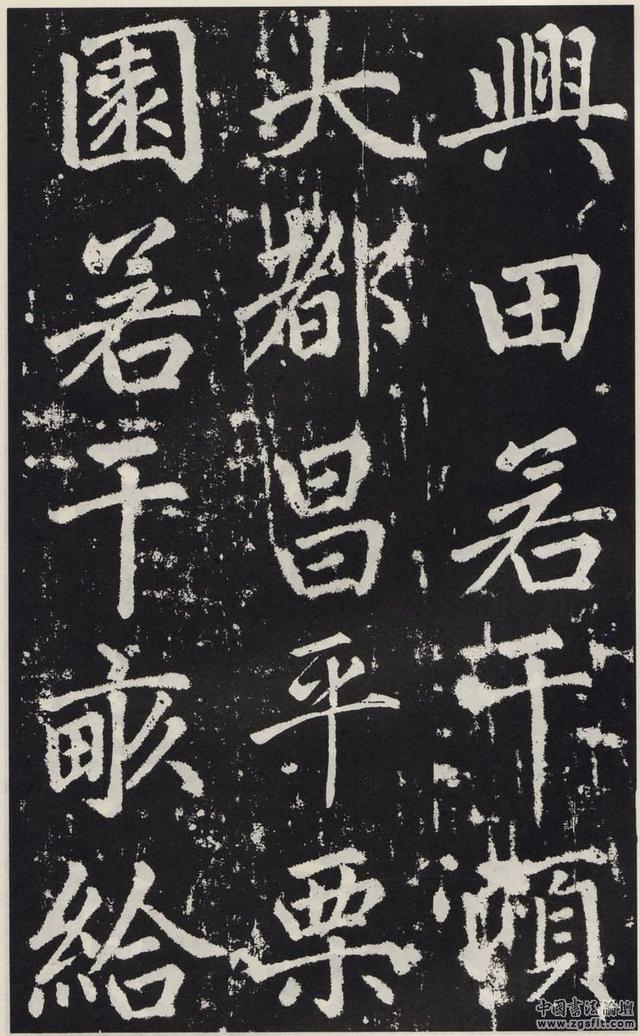 興田若干頃
大都昌平栗
園若干畝給
中国書法論壇
www.zgsflt.com